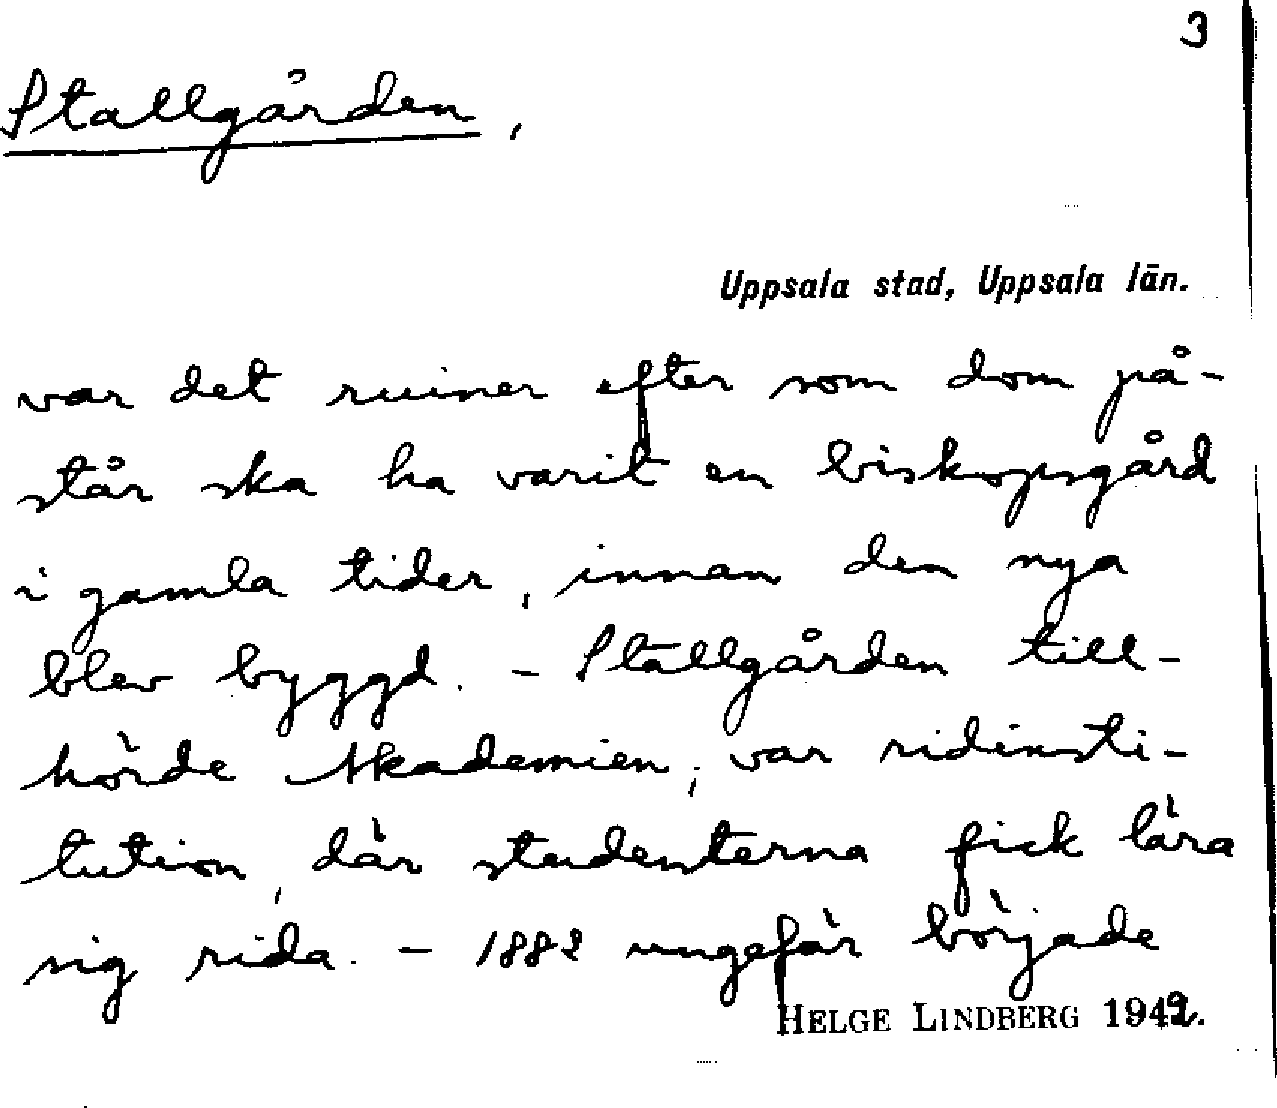 3
Stallgården,
Uppsala stad, Uppsala län.
var det ruiner efter som dom på-
står ska ha varit en biskopsgård
i gamla tider, innan den nya
blev byggd. - Stallgården till-
hörde Akademien, var ridinsti-
tution, där studenterna fick lära
sig rida. - 1882 ungefär började
HELGE LINDBERG 1942.